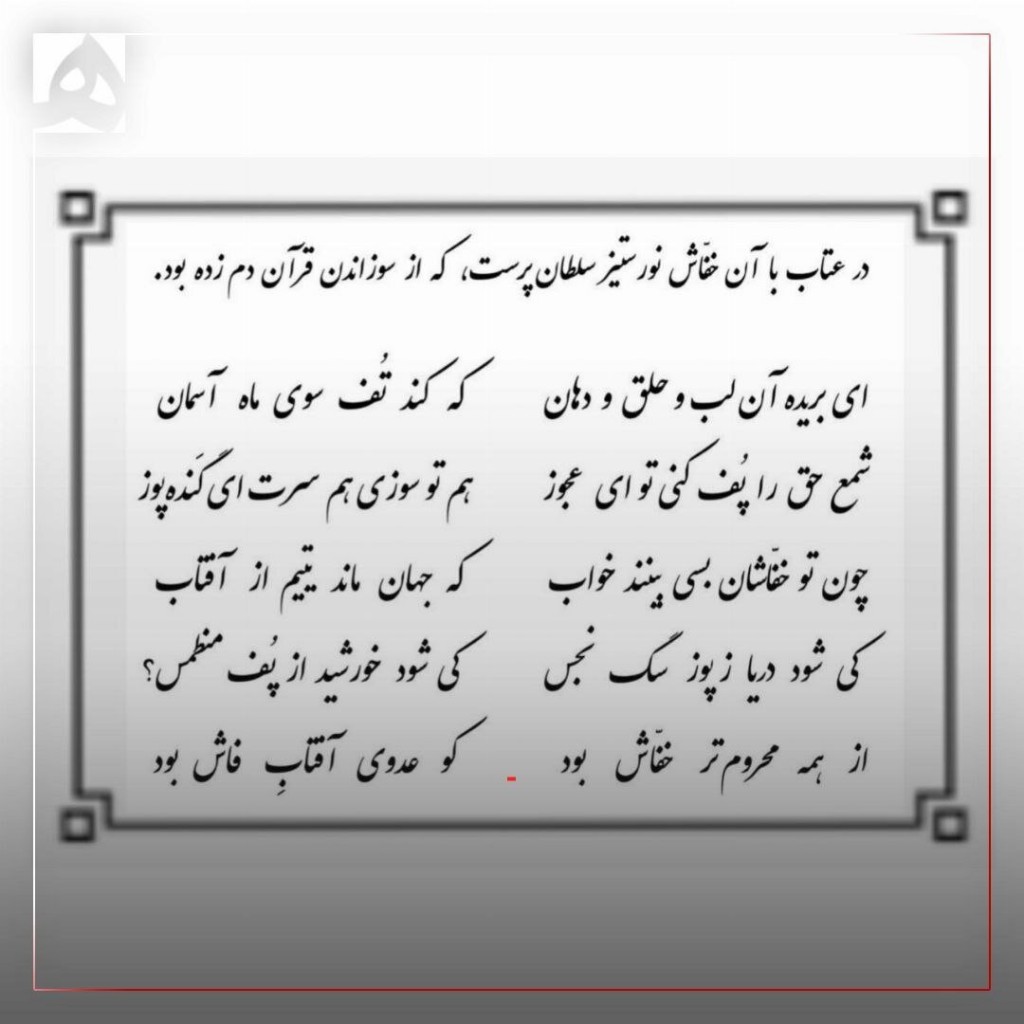 در عتاب با آن خفّاش نورستیز سلطان‌پرست، که از سوزاندن قرآن دم زده بود.
ای بریده آن لب و حلق و دهان که کند تُف سوی ماه آسمان
شمع حق را پُف کنی تو ای عجوز هم تو سوزی هم سرت ای گَنده‌پوز
چون تو خفّاشان بسی بینند خواب که جهان ماند یتیم از آفتاب
کی شود دریا ز پوز سگ نجس کی شود خورشید از پُف منطمس؟
از همه محروم‌تر خفّاش بود کو عدوی آفتابِ فاش بود